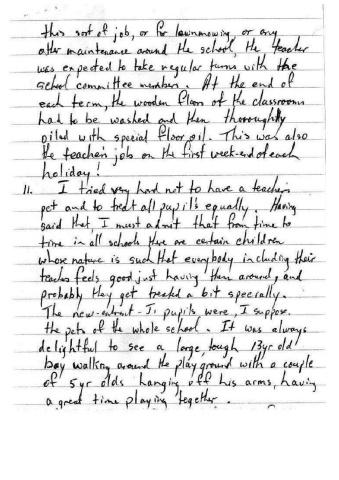 this sort of job, or for lawnmowing, or any
other maintenance around the school, the teacher
was expected to take regular turns with the
school committee members. At the end of
each term, the wooden floors of the classrooms
had to be washed and then thoroughly
oiled with special floor oil. This was also
the teacher's job on the first week-end of each
holiday!
11. I tried very hard not to have a teacher's
pet and to treat all pupils equally. Having
said that, I must admit that from time to
time in all schools there are certain children
whose nature is such that everybody including their
teacher feels good just having them around, and
probably they get treated a bit specially.
The new-entrant - J1 pupils were, I suppose,
the pets of the whole school. It was always
delightful to see a large, tough 13yr old
boy walking around the playground with a couple
of 5yr olds hanging off his arms, having
a great time playing together.